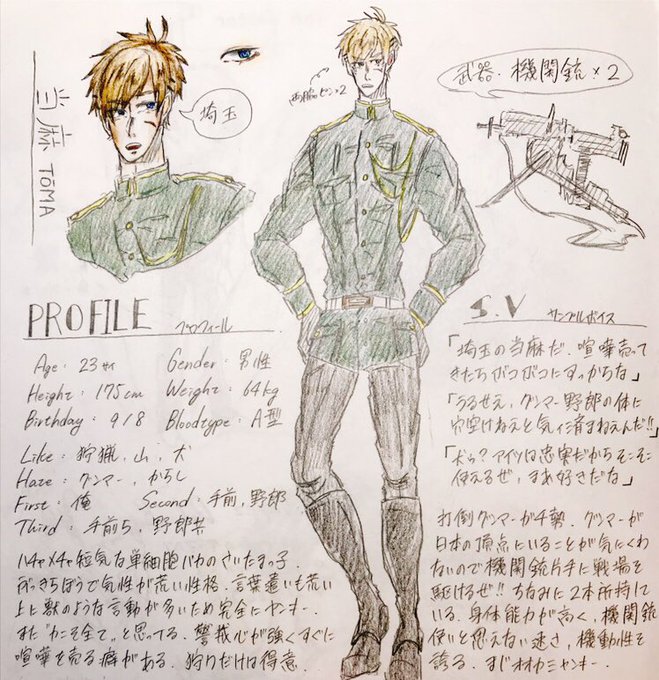 当麻 TOMA
埼玉
両脇ピン×2
武器・機関銃×2
PROFILE プロフィール
Age: 23才 Gender: 男性
Height: 175cm Weight: 64kg
Birthday: 9/8 Bloodtype: A型
Like: 狩猟、山、犬
Haze: グンマー、からし
First: 俺 Second: 手前、野郎
Third: 手前ら、野郎共
ハチャメチャ短気な単細胞バカのさいたまっ子.
ぶっきらぼうで気性が荒い性格. 言葉遣いも荒い
上に獣のような言動が多いため完全にヤンキー.
また"力こそ全て"と思ってる. 警戒心が強くすぐに
喧嘩を売る癖がある. 狩りだけは得意.
S.V サンプルボイス
「埼玉の当麻だ. 喧嘩売って
きたらぶつぶつにすっからな」
「うるせえ, グンマー野郎の体に
穴空けねえと気が済まねえんだ!!」
「犬ら? アイツは忠実だからそこそこ
使えるぜ, まあ好きだな」
打倒グンマーガチ勢. グンマーが
日本の頂点にいることが気にくわ
ないので機関銃片手に戦場を
駆けるぜ!! ちなみに2本所持して
いる. 身体能力が高く, 機関銃
使いと思えない速さ, 機動性を
誇る. まじオオカミヤンキー.